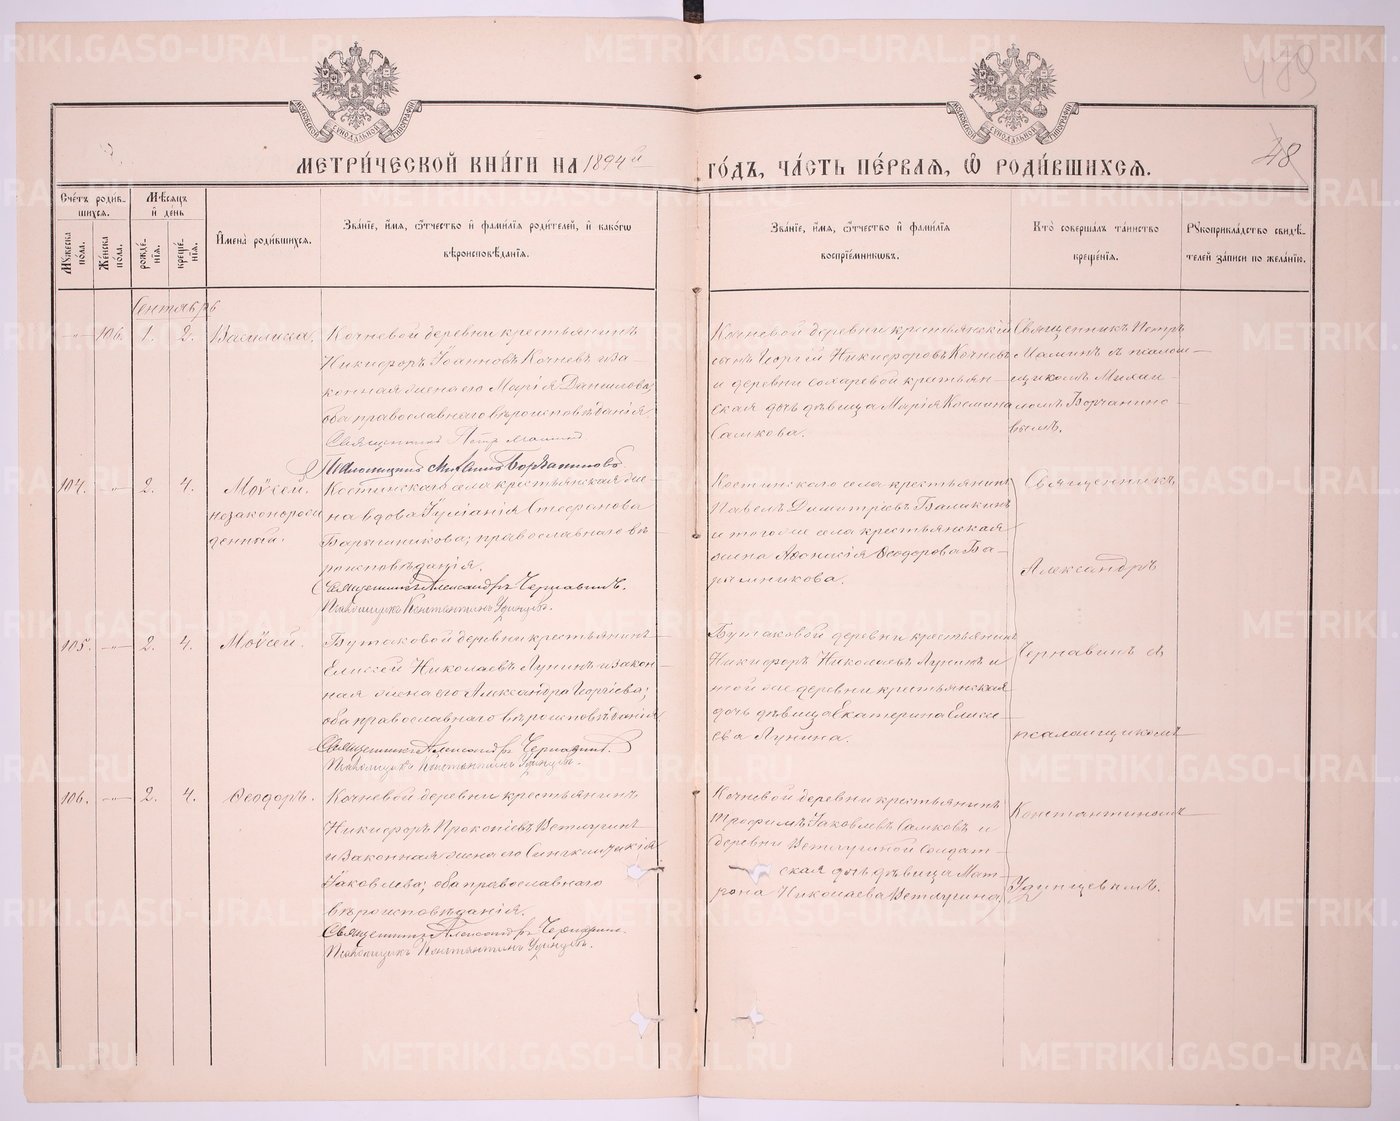 489
48
МОСКОВСКОЙ СѴНОДАЛЬНОЙ ТИПОГРАФІИ
МОСКОВСКОЙ СѴНОДАЛЬНОЙ ТИПОГРАФІИ
МЕТРИ́ЧЕСКОЙ КНИ́ГИ НА 1894й ГО́ДЪ, ЧА́СТЬ ПЕ́РВАѦ, Ѽ РОДИ́ВШИХСѦ.
Сче́тъ роди́в-
шихся.
Мꙋ́жеска
по́ла.
Же́нска
по́ла.
Мѣ́сяцъ
и҆ де́нь
рожде́-
нїѧ.
креще́-
нїѧ.
И҆мена̀ роди́вшихся.
Зва́нїе, и҆́мя, ѻ҆́тчество и҆ фами́лїя роди́телей, и҆ како́гѡ
вѣроисповѣ́данїя.
Зва́нїе, и҆́мя, ѻ҆́тчество и҆ фами́лїя
воспрїе́мникѡвъ.
Кто̀ соверша́лъ та́инство
креще́нїя.
Рꙋкоприкла́дство свидѣ́-
телей за́писи по жела́нїю.
Сентябрь
-"- 106. 1. 2. Василиса.
Кочневой деревни крестьянинъ
Никифоръ Іоанновъ Кочневъ и за-
конная жена его Марія Данилова;
оба православнаго вѣроисповѣданія.
Священникъ Петр Мамин
Псаломщикъ Михаилъ Борчаниновъ
Кочневой деревни крестьянскій
сынъ Георгій Никифоровъ Кочневъ
и деревни Сохаревой крестьян-
ская дочь дѣвица Марія Космина
Самкова.
Священникъ Петръ
Маминъ съ псалом-
щикомъ Михаи-
ломъ Борчанино-
вымъ.
104. -"- 2. 4. Моѵсей.
незаконорож
денный.
Костинскаго села крестьянская же-
на вдова Іуліанія Стефанова
Барышникова; православнаго вѣ-
роисповѣданія.
Священникъ Александръ Чернавинъ.
Псаломщикъ Константинъ Удинцевъ.
Костинскаго села крестьянинъ
Павелъ Димитріевъ Балакинъ
и того же села крестьянская
жена Аѳонасія Ѳеодорова Ба-
рышникова.
Священникъ
Александръ
105. -"- 2. 4. Моѵсей.
Бутаковой деревни крестьянинъ
Елисей Николаевъ Лунинъ и закон-
ная жена его Александра Георгіева;
оба православнаго вѣроисповѣданія
Священникъ Александръ Чернавинъ.
Псаломщикъ Константинъ Удинцевъ.
Бутаковой деревни крестьянинъ
Никифоръ Николаевъ Лунинъ и
той же деревни крестьянская
дочь дѣвица Екатерина Елисе-
ева Лунина.
Чернавинъ съ
псаломщикомъ
106. -"- 2. 4. Ѳеодоръ.
Кочневой деревни крестьянинъ
Никифоръ Прокопіевъ Ветлугинъ
и законная жена его Синклитикія
Іаковлева; оба православнаго
вѣроисповѣданія.
Священникъ Александръ Чернавин.
Псаломщикъ Константинъ Удинцевъ.
Кочневой деревни крестьянинъ
Трофимъ Іаковлевъ Самковъ и
деревни Ветлугиной солдат-
ская дочь дѣвица Мат-
рона Николаева Ветлугина
Константиномъ
Удинцевымъ.